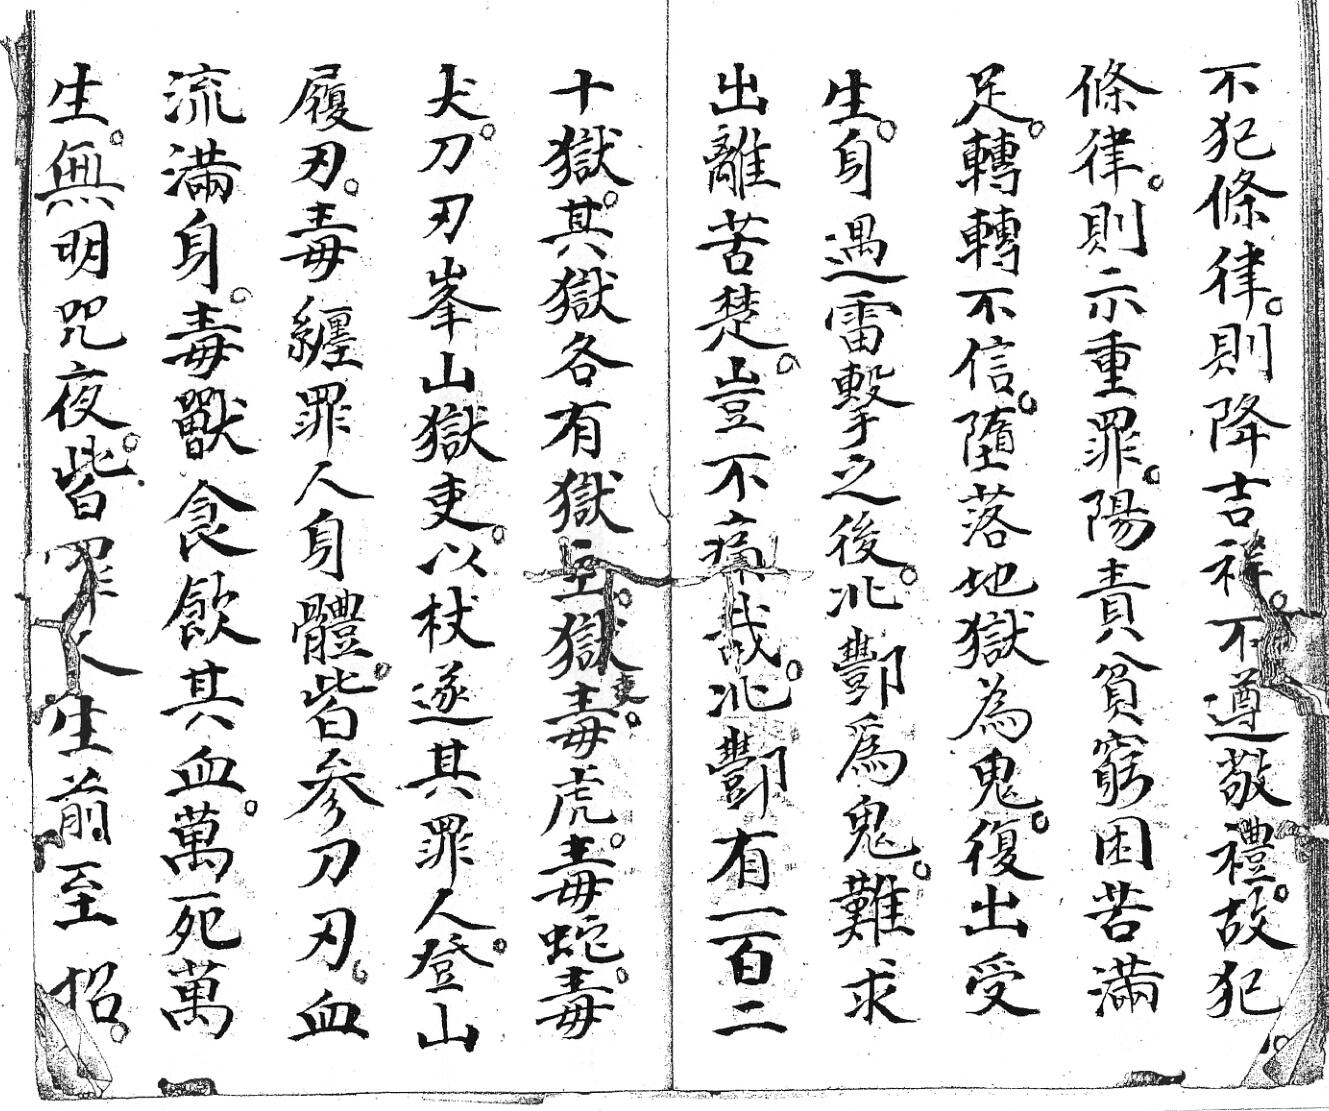 不犯條律。則降吉祥。不遵敬禮。故犯。
條律。則示重罪。陽責貧窮困苦滿
足。轉轉不信。墮落地獄為鬼。復出受
生。身遇雷擊之後。北酆爲鬼。難求
出離苦楚。豈不痛哉。北酆有一百二
十獄。其獄各有獄主。獄吏毒。虎。毒蛇。毒
犬。刀刃峯山獄吏。以杖逐其罪人。登山
履刃。毒纏罪人身體。皆參刀刃。血
流滿身。毒獸食飲其血。萬死萬
生。無明咒夜。皆罪人生前至招。